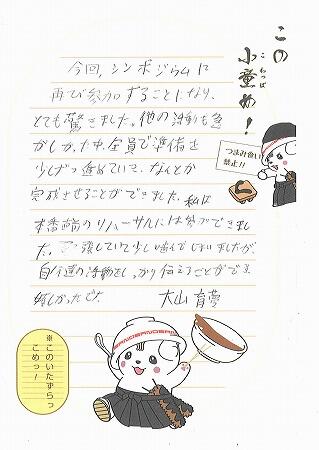 この
小童め!
こわっぱ
つまみ食い
禁止!!
今回、シンポジウムに
再び参加することになり、
とても驚きました。他の活動も急
がしかった中、全員で準備を
少しずつ進めていって、なんとか
完成させることができました。私は
本番前のリハーサルには参加できまし
た。緊張していて少し噛んでしまいましたが、
自分達の活動をしっかり伝えることができ
嬉しかったです。
大山 育夢
※このいたずらっ
こめっ!